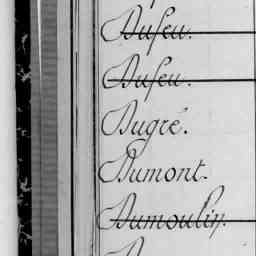 Dufeu.
Dufeu.
Dugré.
Dumont.
Dumoulin.